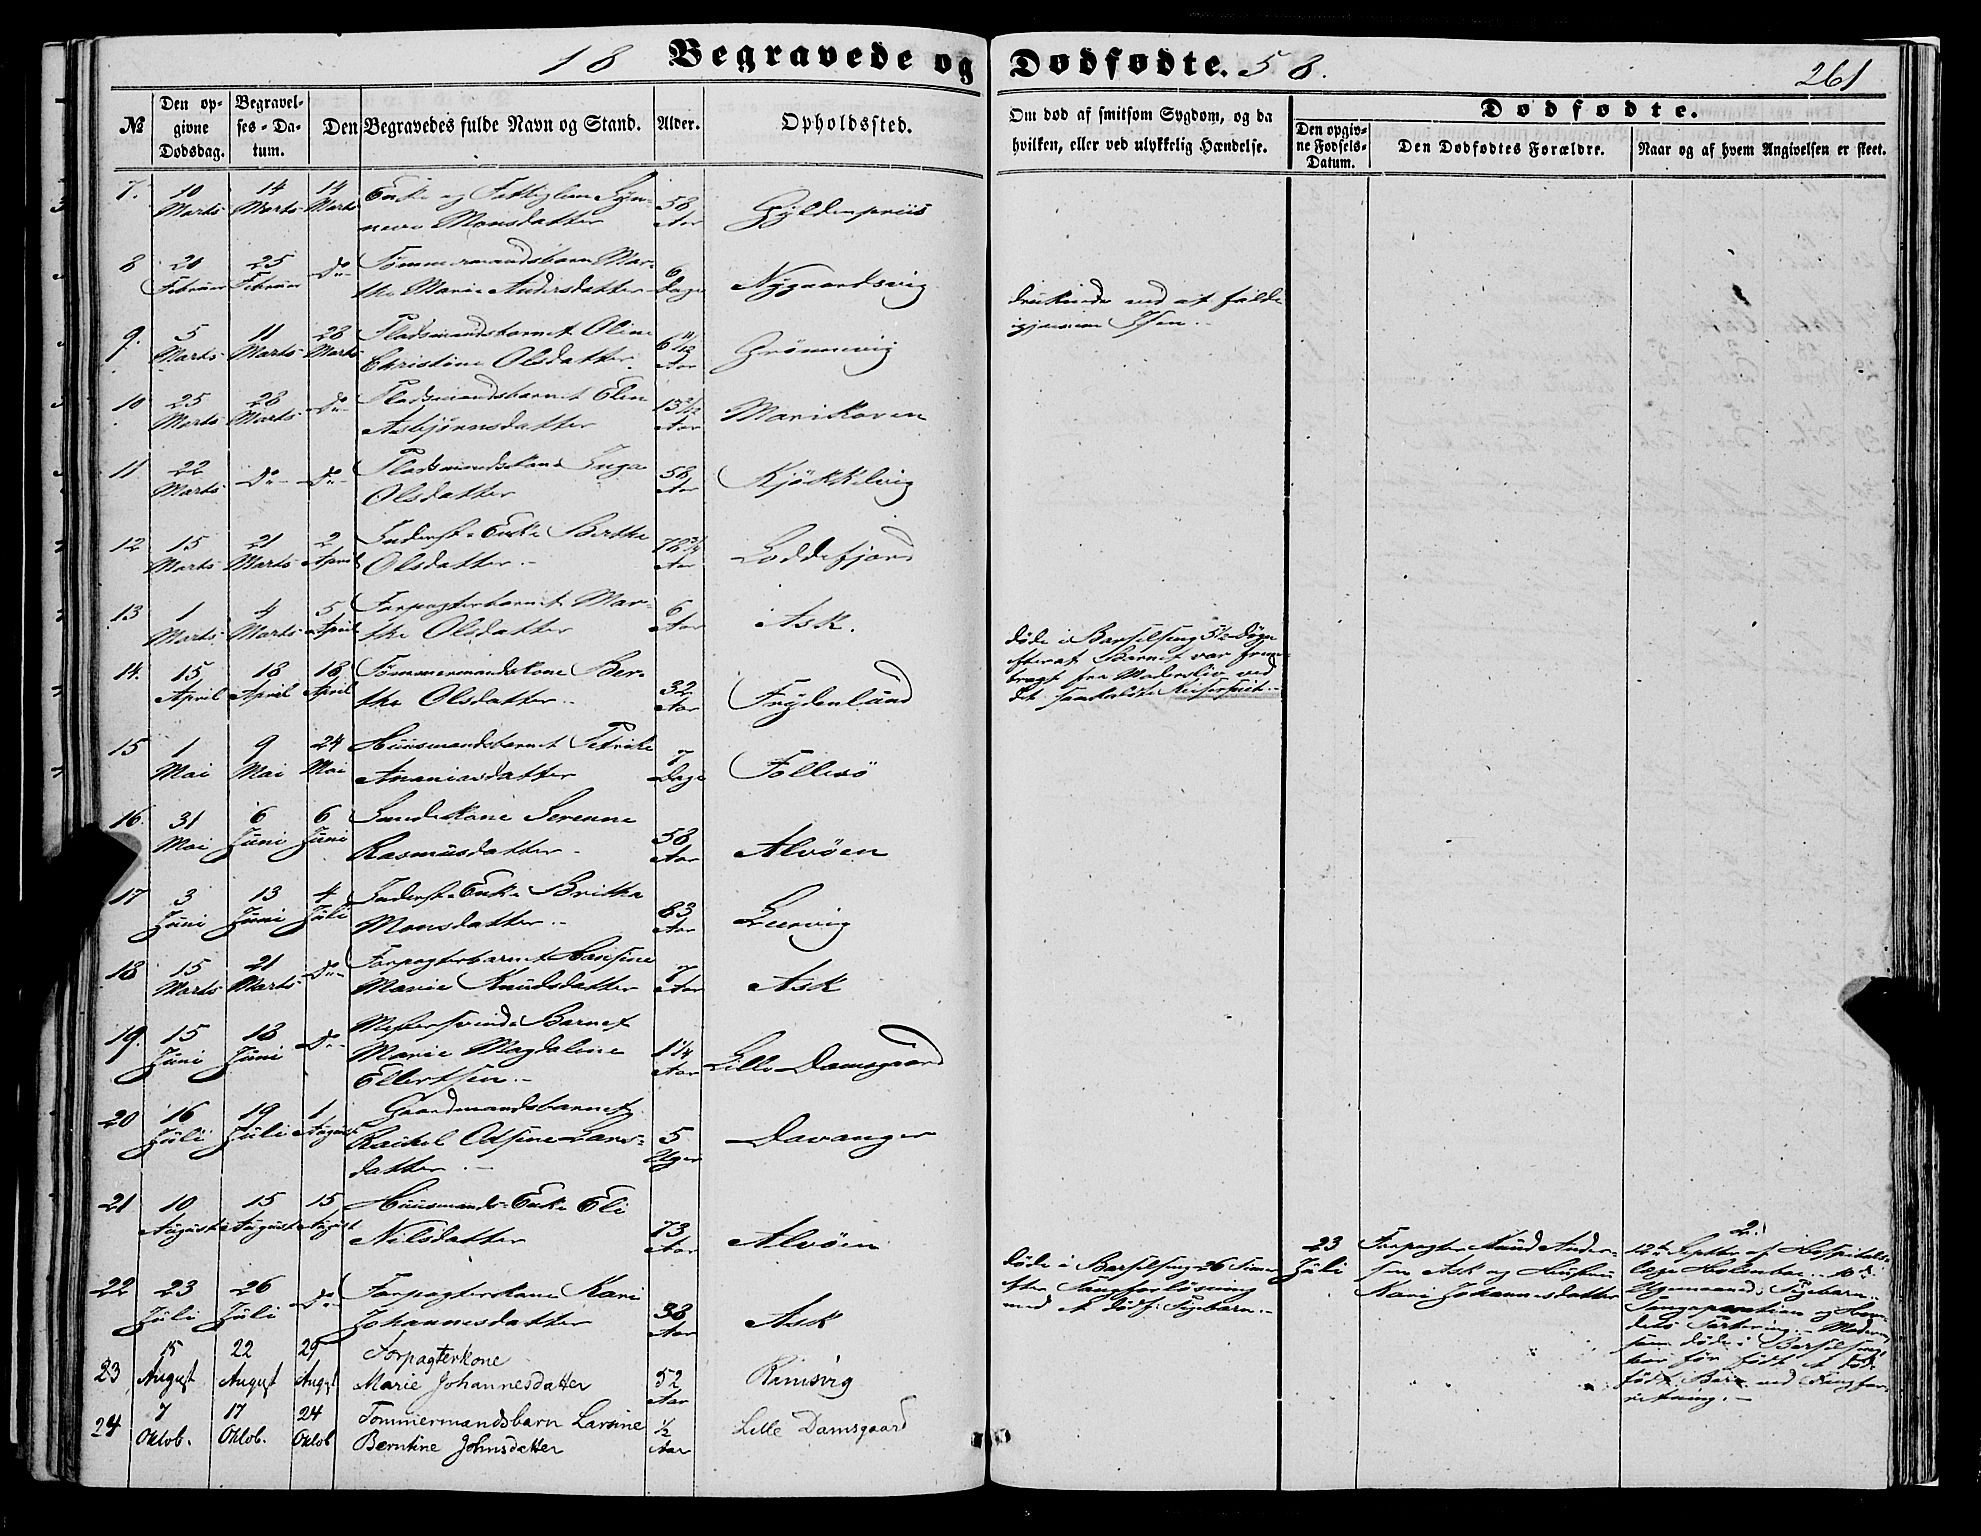 18 Begravede og Dødfødte. 58.
261
№
Den opgivne Dødsdag.
Begravelses-Datum.
Den Begravedes fulde Navn og Stand.
Alder.
Opholdssted.
Om død af smitsom Sygdom, og da
hvilken, eller ved ulykkelig Hændelse.
Dødfødte.
Den opgivne Fødsels-Datum.
Den Dødfødtes Forældre.
Naar og af hvem Angivelsen er skeet.
7. 10 Marts 14 Marts 14 Marts Enke og Fattiglem Syn-
neve Monsdatter 58 Aar Gyldenpriis
8 20 Februar 25 Februar Do Tømmermandsbarn Mar-
the Marie Andersdatter 6 Dage Nygaardsvig
9. 5 Marts 11 Marts 28 Marts Pladsmandsbarnet Oline
Christine Olsdatter 6 11/12 Aar Grønnevig
druknede ved at falde
igjennem Isen.
10 25 Marts 28 Marts Do Pladsmandsbarnet Elen
Asbjørnsdatter Aar Marikoven
11. 22 Marts Do Do Pladsmandskone Inga
Olsdatter 58 Aar Kjøkkelvig
12 15 Marts 21 Marts 2 April Inderst-Enke Berthe
Olsdatter Aar Loddefjord
13 1 Marts 4 Marts 5 April Forpagterbarnet Mar-
the Olsdatter 6 Aar Ask.
14. 15 April 18 April 18 April Tømmermandskone Ber-
the Olsdatter 32 Aar Frydenlund
døde i Barselseng 5½ Døgn
efterat Barnet var frem-
bragt fra Moderliv ved
det saakaldte Keisersnit.
15 1 Mai 9 Mai 24 Mai Huusmandsbarnet Petrike
Ananiasdatter 7 Dage Follesø
16. 31 Mai 6 Juni 6 Juni Serenne
Rasmusdatter 58 Aar Alvøen
17 3 Juni 13 Juni 4 Juli Inderst-Enke Britha
Monsdatter 83 Aar Leervig
18 15 Marts 21 Marts Do Forpagterbarnet Hansine
Marie Knudsdatter 7 Aar Ask
19. 15 Juni 18 Juni Do Mestersvends Barnet
Marie Magdalene
Ellertsen 1¼ Aar Lille Damsgaard
20 16 Juli 19 Juli 1 August Gaardmandsbarnet
Rachel Lars-
datter 5 Uger Davanger
21 10 August 15 August 15 August Huusmands-Enke Eli
Nilsdatter 73 Aar Alvøen
22 23 Juli 26 Juli Do Forpagterkone Kari
Johannesdatter 38 Aar Ask
døde i Barselseng 26 Timer
efter Tangforløsning
med et dødf: Pigebarn.
23 Juli
Forpagter Knud Ander-
sen Ask og Hustru
Kari Johannesdatter
2.
12te Septbr af Hospitals-
læge
Pigebarn.
Tangoperation og
Moderen
som døde i Barselseng
har før født et død-
født Barn ved Tangfor-
retning.
23 15 August 22 August 29 August Forpagterkone
Marie Johannesdatter 52 Aar Kimsvig
24 7 Oktob. 17 Oktob. 24 Oktob Tommermandsbarn Larsine
Berntine Johnsdatter ½ Aar Lille Damsgaard